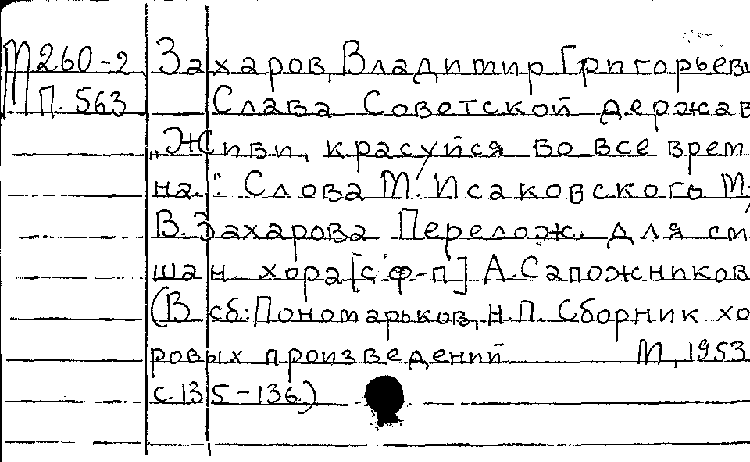 М 260-2 Захаров, Владимир Григорьеви
П. 563 Слава Советской держав
„Живи, красуйся во все врем
на.". Слова М. Исаковского М.
В. Захарова Перелож. для см
шан хора [с ф-п] А. Сапожников
(В сб: Пономарьков, Н.П. Сборник хо
ровых произведений М, 1953
с. 135-136.)